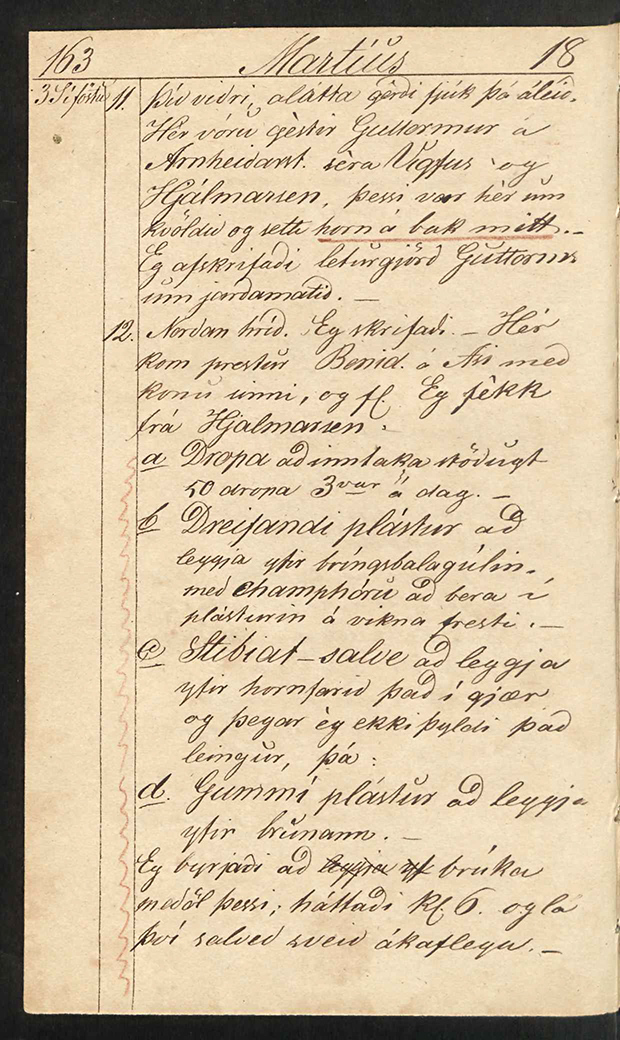 163 Martíus 18
3 S í föstu 11. Þíðviðri, alátta gèrði fjúk þá áleið.
Hèr vóru gèstir Guttormur á
Arnheiðarst. sèra Vigfús og
Hjálmarsen, þessi var hèr um
kvöldið og setti horn á bak mitt. —
Eg afskrifaði leturgjörð Guttorms
um jarðamatið. —
12. Norðan hríð. Eg skrifaði. — Hèr
kom prestur Benid. á Ási með
konu sinni, og fl. Eg fèkk
frá Hjalmarsen:
a Dropa að inntaka stöðugt
50 dropa 3var á dag. —
b Dreifandi plástur að
leggja yfir bríngsbalagúlin,
með Champhóru að bera í
plásturin á vikna fresti. —
c Stibiat-salve að leggja
yfir hornfarið það í gjær
og þegar èg ekki þyldi það
leingur, þá:
d. Gummí plástur að leggja
yfir brunann. —
Eg byrjaði að leggja yf brúka
meðöl þessi; háttaði Kl. 6. og lá
því salveð sveið ákaflega. —